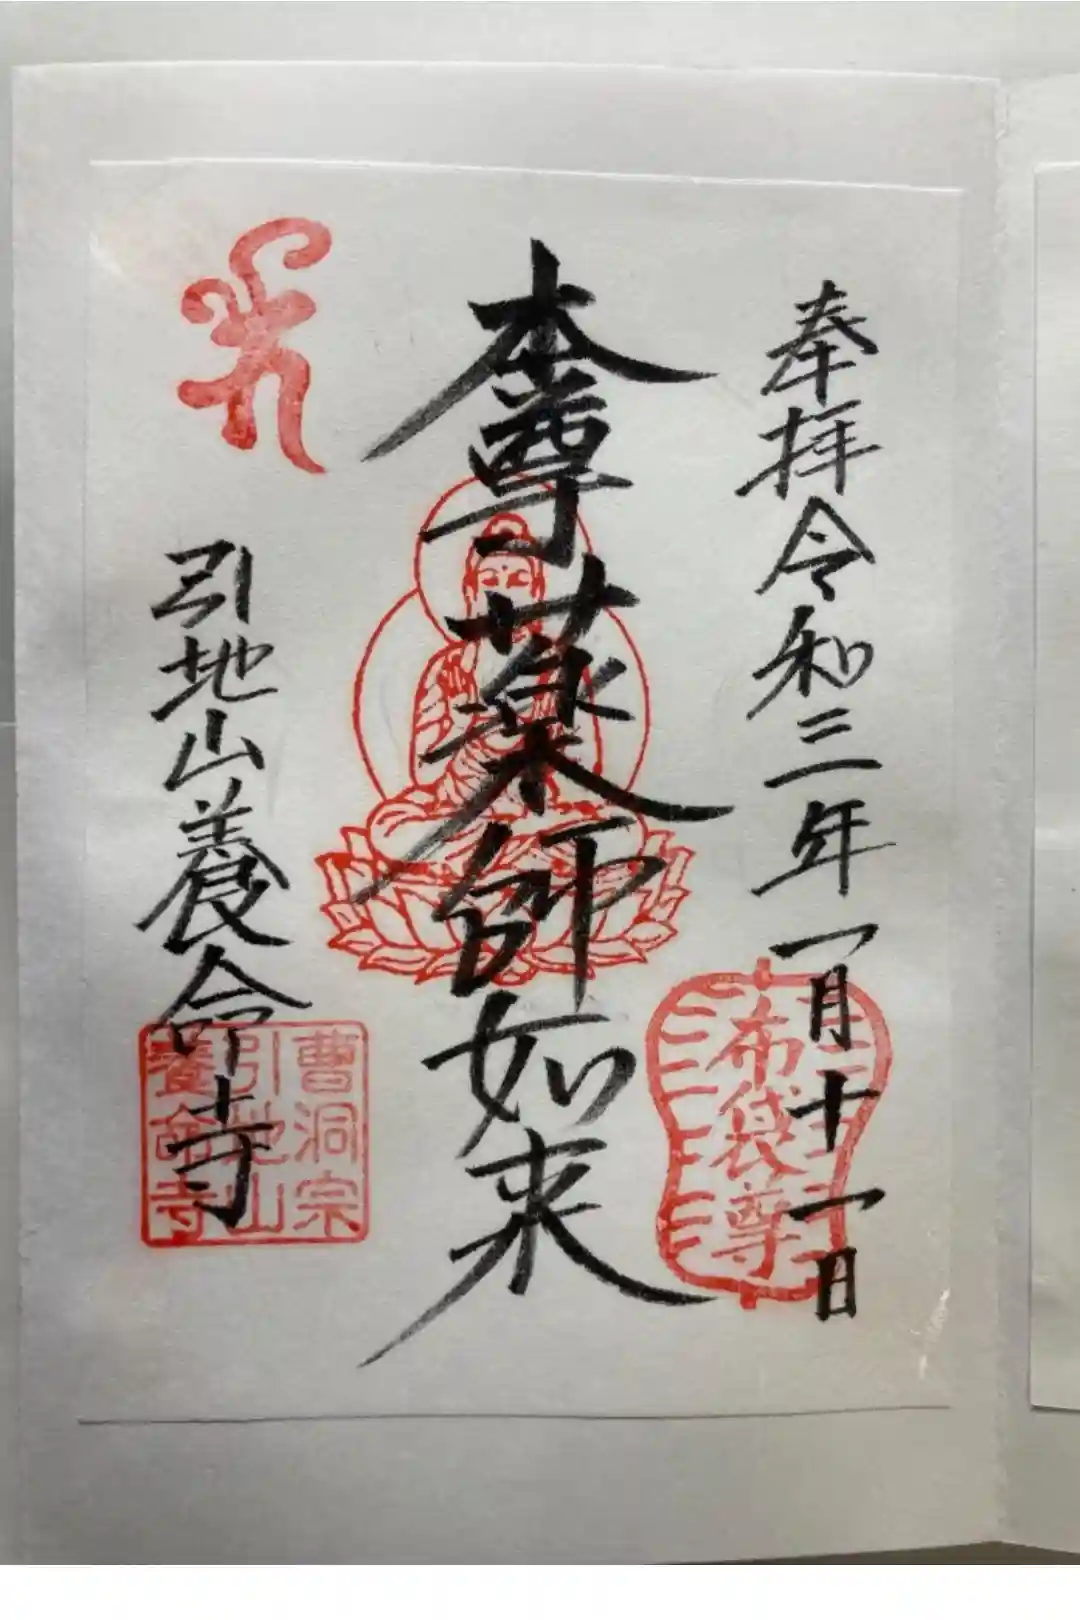 奉拝 令和三年 一月十一日
布袋尊
本尊薬師如来
引地山養命寺
曹洞宗
引地山
養命寺